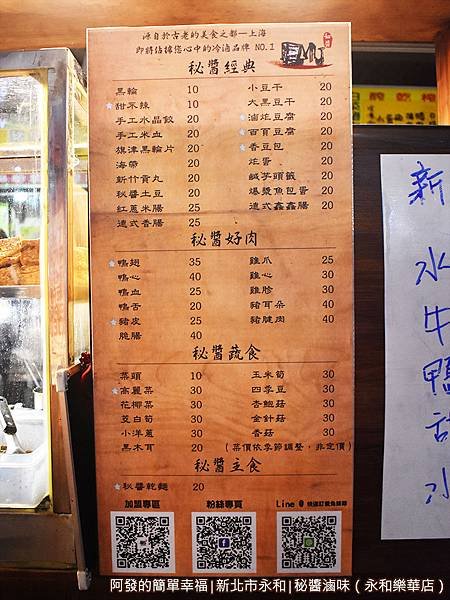 源自於古老的美食之都—上海
即將佔據您心中的冷滷品牌 NO.1
秘醬經典
黑輪 10 小豆干 20
甜不辣 10 大黑豆干 20
手工水晶餃 20 滷炸豆腐 20
手工米血 20 百頁豆腐 20
旗津黑輪片 20 香豆包 20
海帶 20 炸蛋 20
新竹貢丸 20 鹹芋頭籤 20
秘醬土豆 20 爆漿魚包蛋 20
紅蔥米腸 25 連式鑫鑫腸 20
連式香腸 25
秘醬好肉
鴨翅 35 雞爪 25
鴨心 40 雞心 30
鴨血 25 雞胗 30
鴨舌 20 豬耳朵 40
豬皮 25 豬腱肉 40
脆腸 40
秘醬蔬食
菜頭 10 玉米筍 30
高麗菜 30 四季豆 30
花椰菜 30 杏鮑菇 30
茭白筍 30 金針菇 30
小洋蔥 30 香菇 30
黑木耳 20 (菜價依季節調整，非定價)
秘醬主食
秘醬乾麵 20
加盟專區 粉絲專頁 Line @
新
水
牛
鴨
水
阿發的簡單幸福|新北市永和|秘醬滷味（永和樂華店）